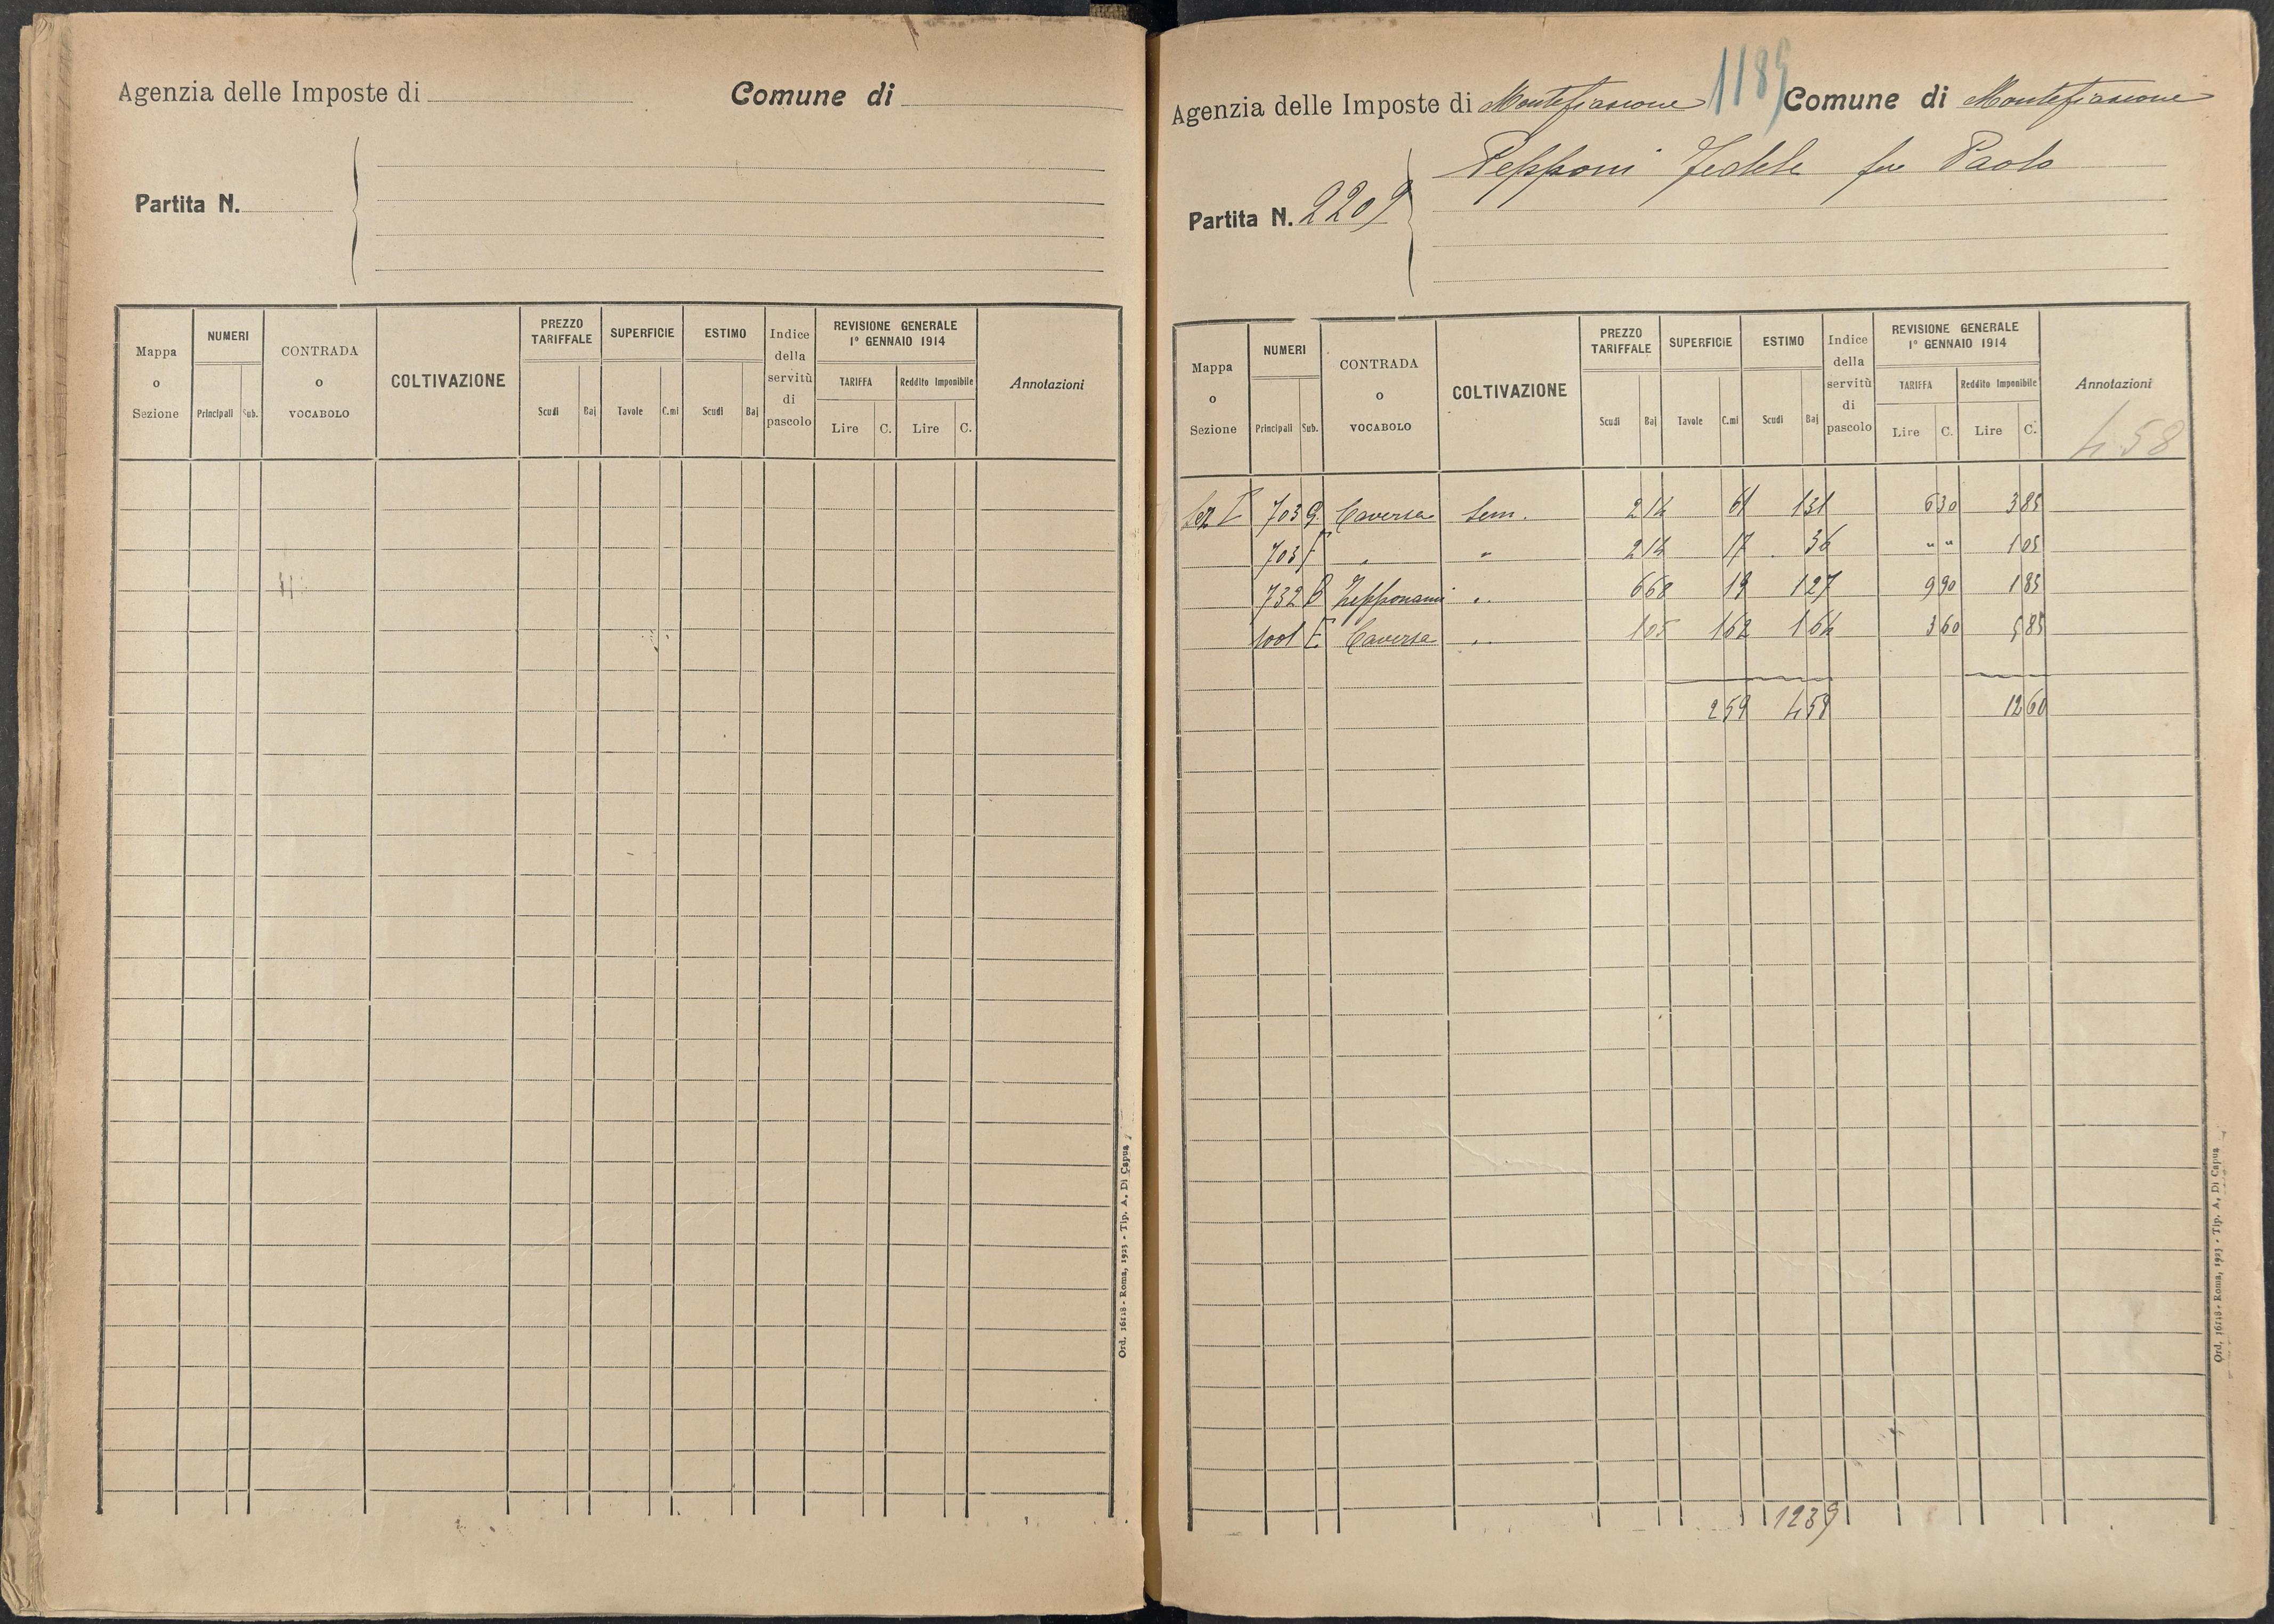 Agenzia delle Imposte di
Comune di
Partita N.
Mappa o Sezione
NUMERI
Principali Sub.
CONTRADA o VOCABOLO
COLTIVAZIONE
PREZZO TARIFFALE
Scudi Baj
SUPERFICIE
Tavole C.mi
ESTIMO
Scudi Baj
Indice della servitù di pascolo
REVISIONE GENERALE 1° GENNAIO 1914
TARIFFA
Lire C.
Reddito Imponibile
Lire C.
Annotazioni
Ord. 16118 - Roma, 1923 - Tip. A. Di Capua
1189
Agenzia delle Imposte di Montefiascone Comune di Montefiascone
Pepponi Fedele fu Paolo
Partita N. 2209
Mappa o Sezione
NUMERI
Principali Sub.
CONTRADA o VOCABOLO
COLTIVAZIONE
PREZZO TARIFFALE
Scudi Baj
SUPERFICIE
Tavole C.mi
ESTIMO
Scudi Baj
Indice della servitù di pascolo
REVISIONE GENERALE 1° GENNAIO 1914
TARIFFA
Lire C.
Reddito Imponibile
Lire C.
Annotazioni
4.58
Sez I 703 G. Caversa Sem. 2 14 61 1 31 6 30 3 85
703 F " " 2 14 17 36 " " 1 05
732 B Zepponami " 6 68 19 1 27 9 90 1 85
1001 E. Caversa " 1 05 1 62 1 64 3 60 5 85
2 59 4 58 12 60
1239
Ord. 16118 - Roma, 1923 - Tip. A. Di Capua